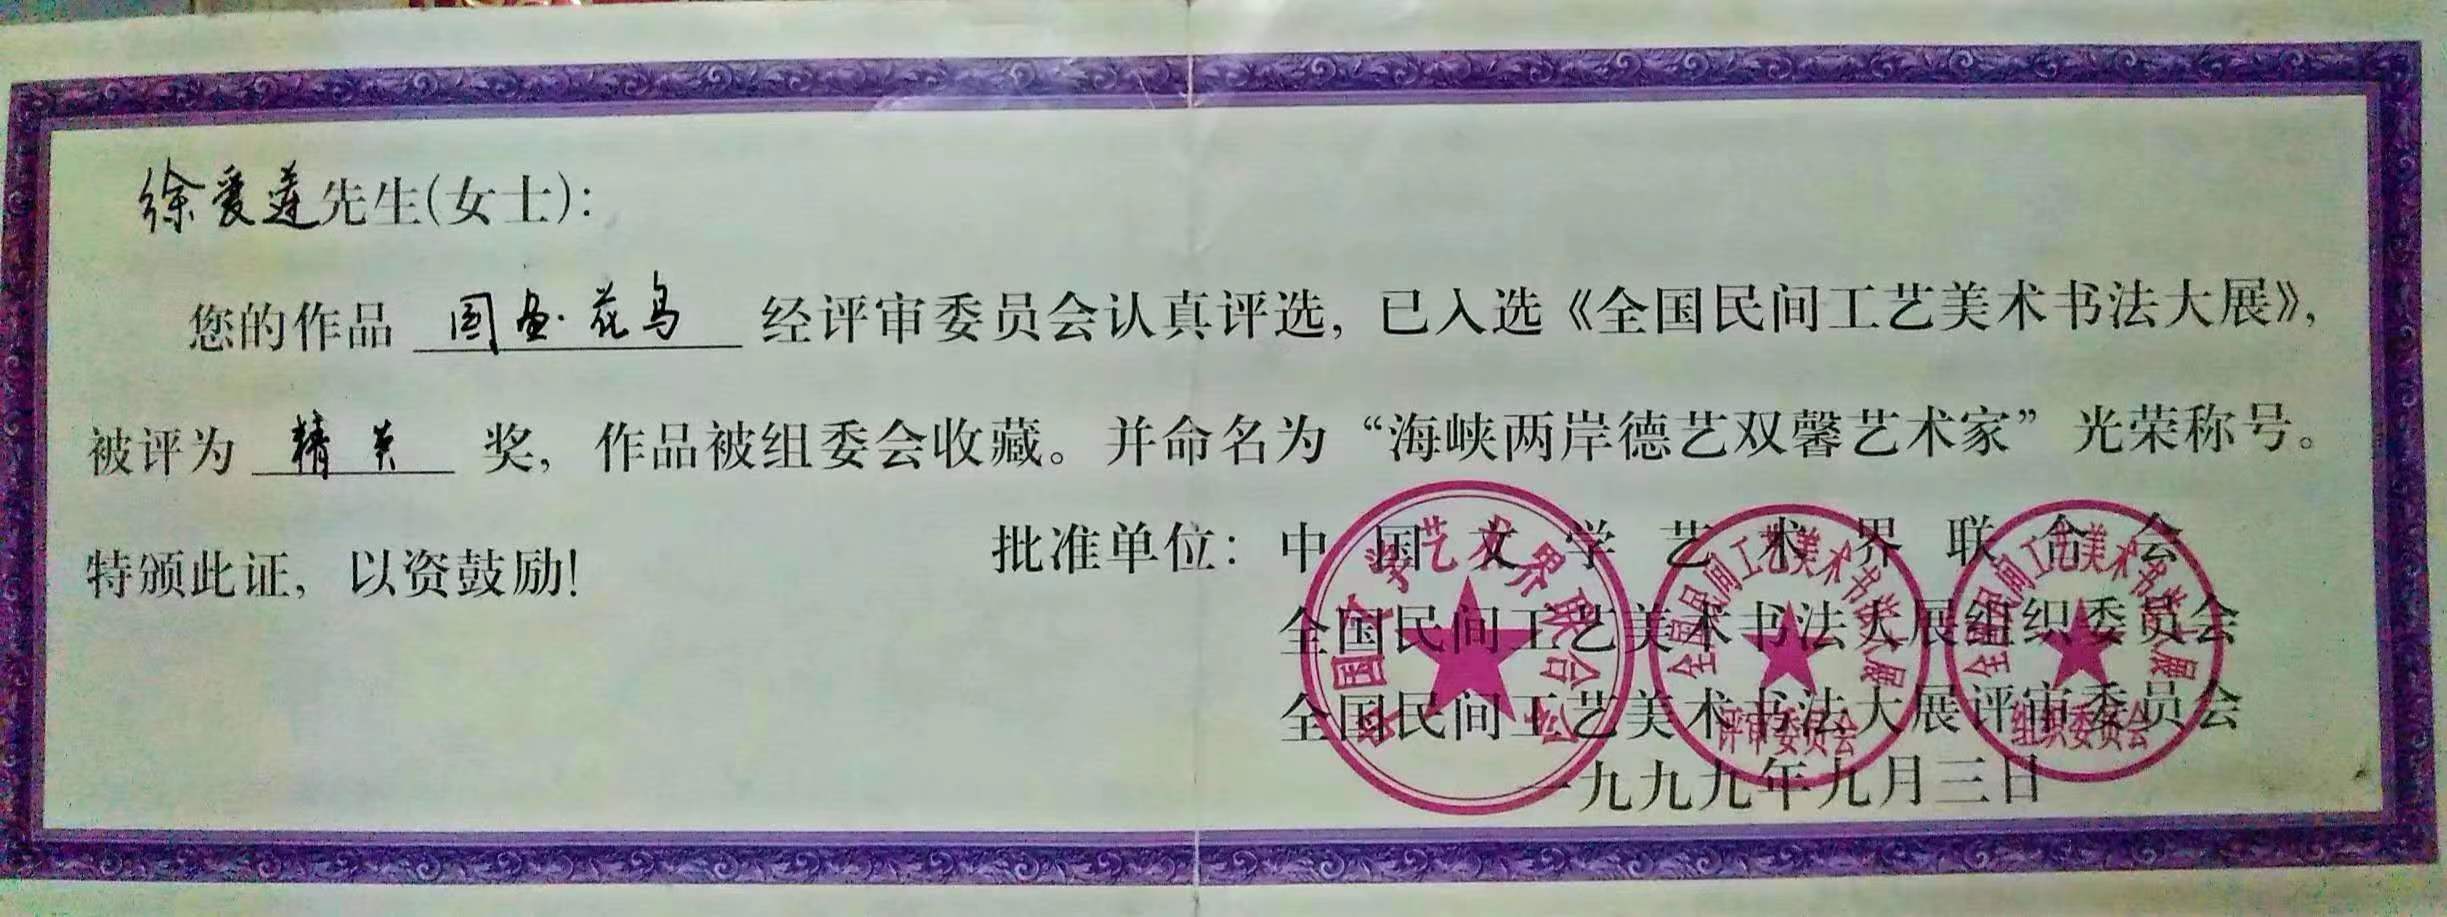 徐爱莲先生(女士)：
您的作品 国画·花鸟 经评审委员会认真评选，已入选《全国民间工艺美术书法大展》，
被评为 精英 奖，作品被组委会收藏。并命名为“海峡两岸德艺双馨艺术家”光荣称号。
特颁此证，以资鼓励！
批准单位：中国文学艺术界联合会
全国民间工艺美术书法大展组织委员会
全国民间工艺美术书法大展评审委员会
一九九九年九月三日
中国文学艺术界联合会
全国民间工艺美术书法大展
评审委员会
全国民间工艺美术书法大展
组织委员会